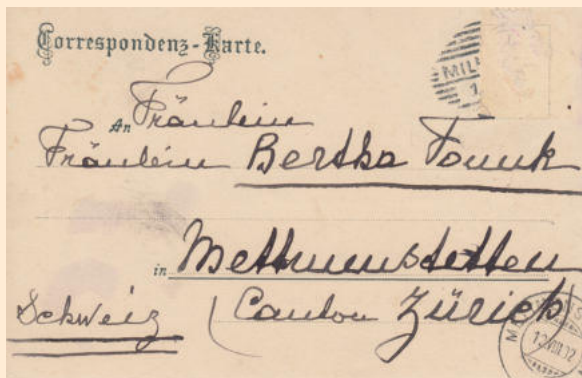 Correspondenz-Karte.
MIL
An Fräulein
Fräulein Bertha
in Mettmenstetten
Schweiz (Canton Zürich
12.VIII.02